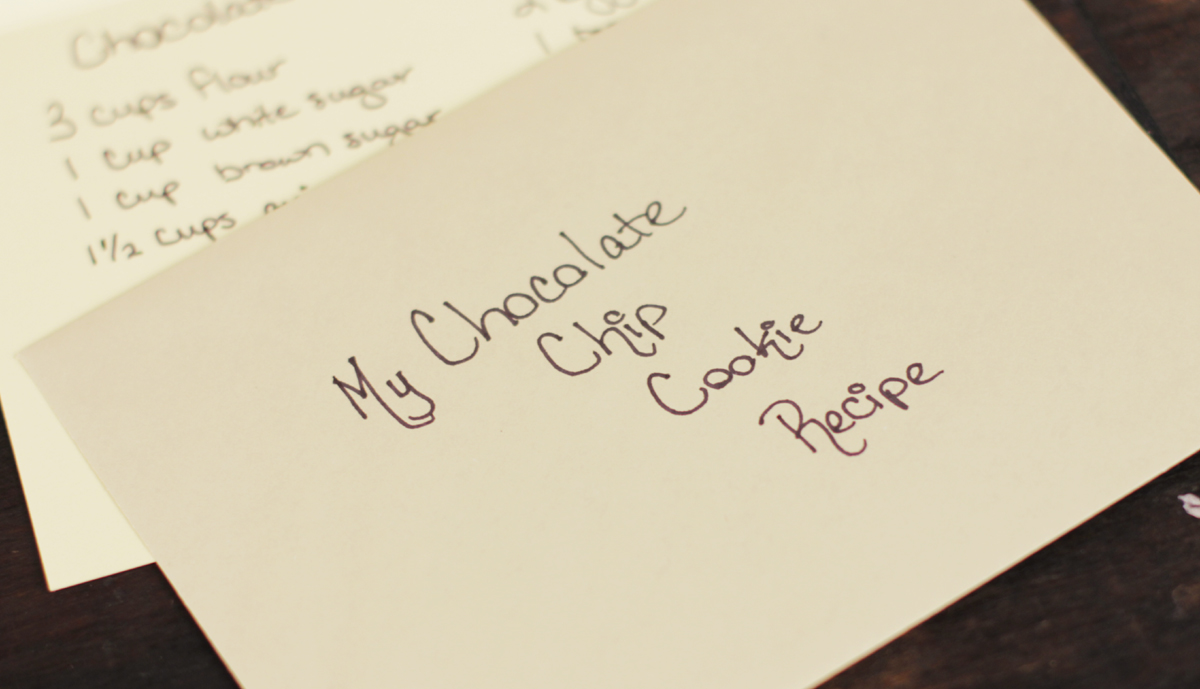 Chocolate
3 cups flour
1 cup white sugar
1 cup brown sugar
1 1/2 cups
2
1
My Chocolate
Chip
Cookie
Recipe